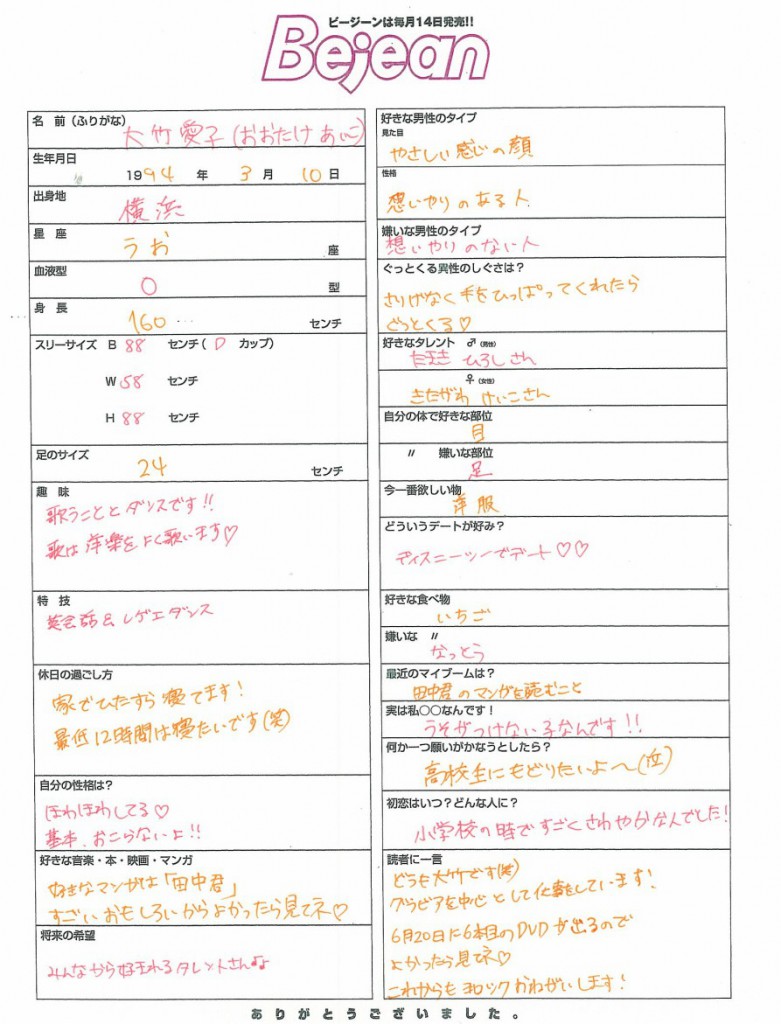 ビージーンは毎月14日発売!!
Bejean
名　前（ふりがな）
大竹愛子(おおたけ あいこ)
生年月日
1994 年 3 月 10 日
出身地
横浜
星　座
うお 座
血液型
O 型
身　長
160 センチ
スリーサイズ B 88 センチ( D カップ)
W 58 センチ
H 88 センチ
足のサイズ
24 センチ
趣　味
歌うこととダンスです!!
歌は洋楽をよく歌います♡
特　技
英会話&レゲエダンス
休日の過ごし方
家でひたすら寝てます!
最低12時間は寝たいです(笑)
自分の性格は？
ほわほわしてる♡
基本、おこらないよ!!
好きな音楽・本・映画・マンガ
好きなマンガは「田中君」
すごいおもしろいからよかったら見てネ♡
将来の希望
みんなから好まれるタレントさん♪
好きな男性のタイプ
見た目
やさしい感じの顔
性格
想いやりのある人
嫌いな男性のタイプ
想いやりのない人
ぐっとくる異性のしぐさは？
さりげなく手をひっぱってくれたら
ぐっとくる♡
好きなタレント ♂(男性)
たまき ひろしさん
♀(女性)
きたがわ けいこさん
自分の体で好きな部位
目
〃　嫌いな部位
足
今一番欲しい物
洋服
どういうデートが好み？
ディズニーシーでデート♡♡
好きな食べ物
いちご
嫌いな 〃
なっとう
最近のマイブームは？
田中君のマンガを読むこと
実は私〇〇なんです！
うそがつけない子なんです!!
何か一つ願いがかなうとしたら？
高校生にもどりたいよ〜(泣)
初恋はいつ？どんな人に？
小学校の時ですごくさわやかなんでした!
読者に一言
どうも大竹です(笑)
グラビアを中心として仕事をしています!
6月20日に6本目のDVDが出るので
よかったら見てネ♡
これからもヨロシクおねがいします!
ありがとうございました。